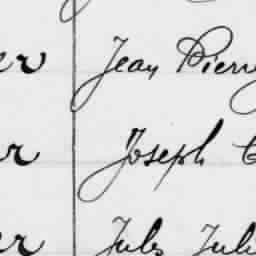 er Jean Pierr
er Joseph
er Jules Juli